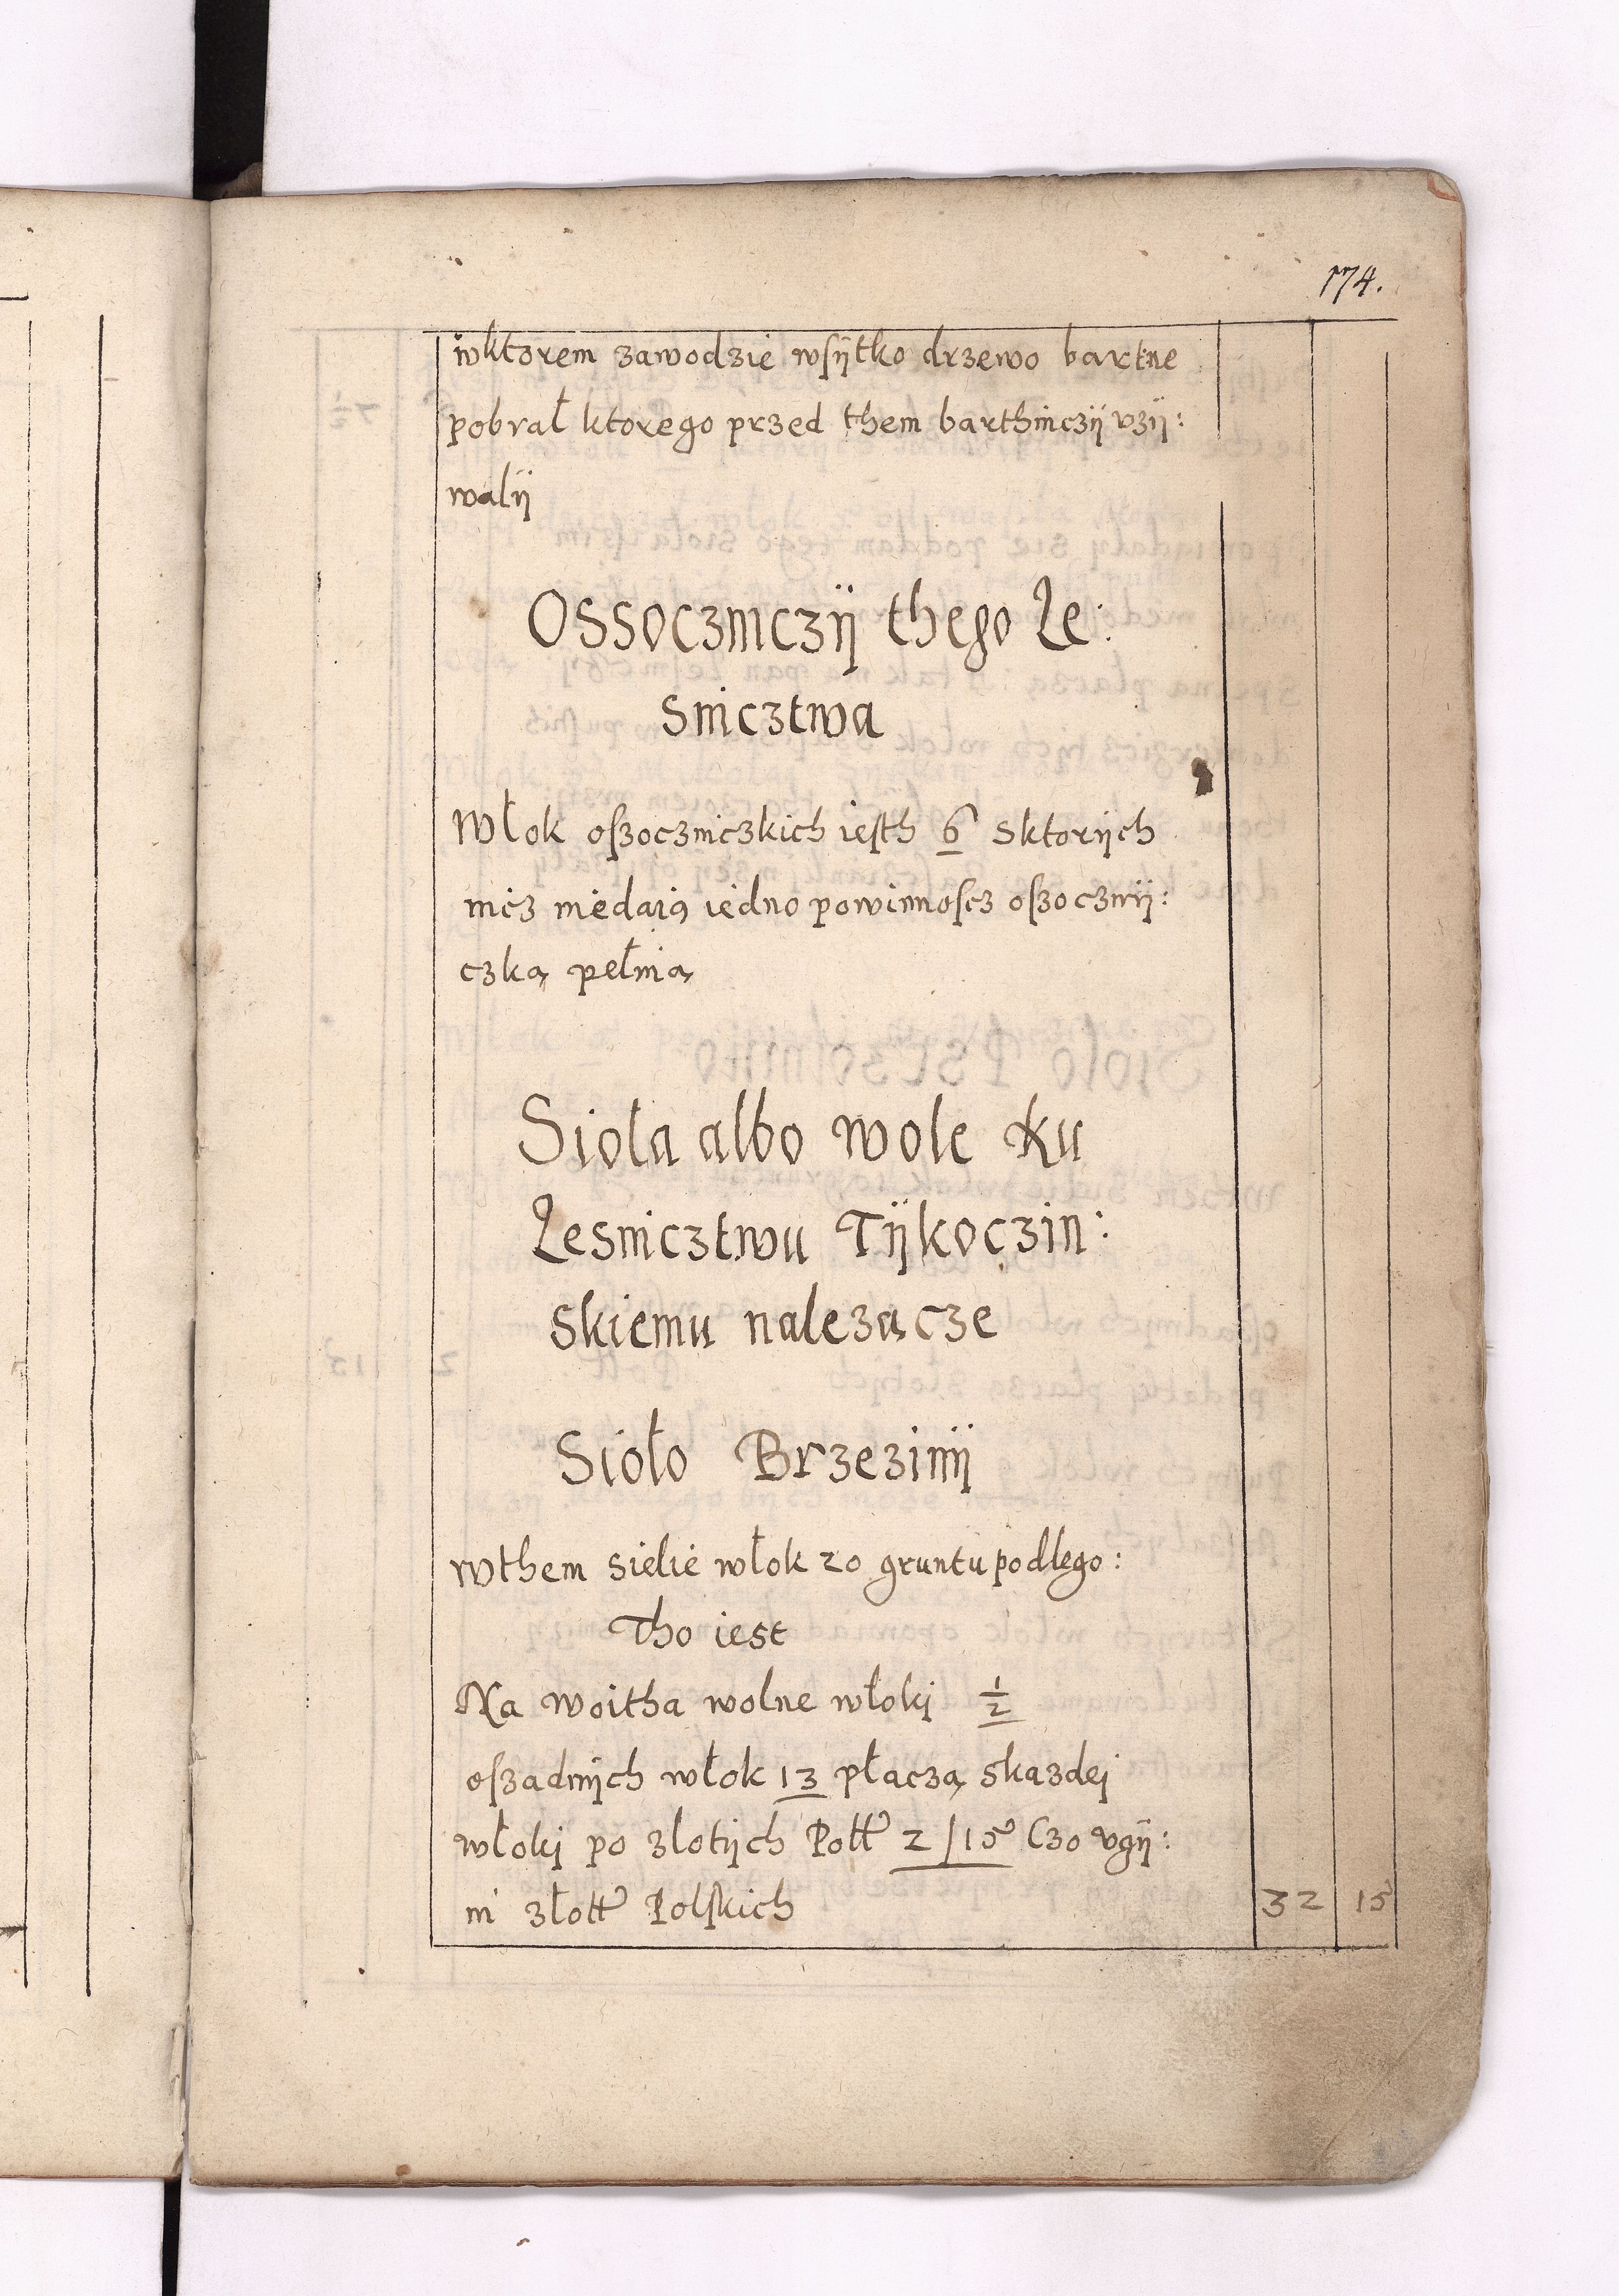 174.
wktorem zawodzie wſÿtko drzewo bartne
pobrał ktorego przed them barthniczÿ vzÿ:
walÿ
Ossoczniczÿ thego Le:
snicztwa
Włok oſzoczniczkich ieſth 6 sktorÿch
nicz niedaią iedno powinnoſcz oſzocznÿ:
czką pełnią
Sioła albo wole Ku
Lesnicztwu Tÿkoczin:
skiemu nalezącze
Sioło Brzezinÿ
wthem sielie włok 20 gruntu podlego:
Tho iest
Na woitha wolne włoki ½
oſzadnÿch włok 13 płaczą skazdei
włoki po złotÿch Poll 2/15 Czo vgÿ:
ni złott Polſkich 32 15